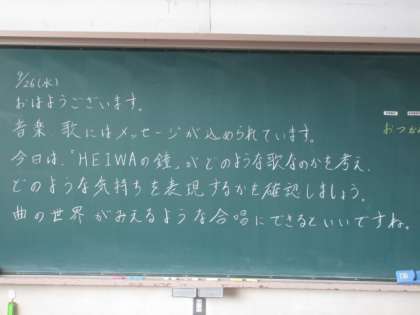 9/26(水)
おはようございます。
音楽、歌にはメッセージが込められています。
今日は、「HEIWAの鐘」がどのような歌なのかを考え、
どのような気持ちを表現するかを確認しましょう。
曲の世界がみえるような合唱にできるといいですね。
おつか